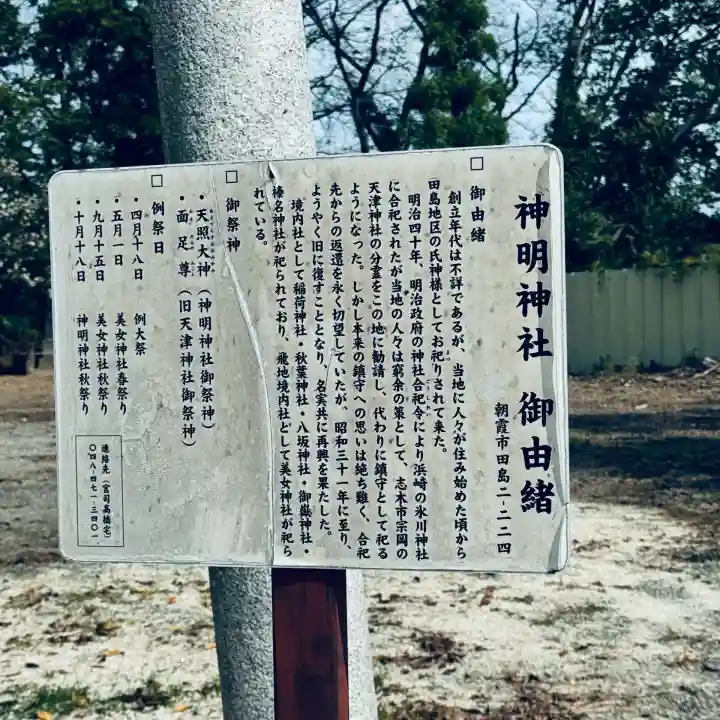 神明神社 御由緒
朝霞市田島二-二-二四
□ 御由緒
創立年代は不詳であるが、当地に人々が住み始めた頃から
田島地区の氏神様としてお祀りされて来た。
明治四十年、明治政府の神社合祀令により浜崎の氷川神社
に合祀されたが当地の人々は窮余の策として、志木市宗岡の
天津神社の分霊をこの地に勧請し、代わりに鎮守として祀る
ようになった。しかし本来の鎮守への思いは絶ち難く、合祀
先からの返還を永く切望していたが、昭和三十一年に至り、
ようやく旧に復すこととなり、名実共に再興を果たした。
境内社として稲荷神社・秋葉神社・八坂神社・御嶽神社・
榛名神社が祀られており、飛地境内社として美女神社が祀ら
れている。
□ 御祭神
・天照大神(神明神社御祭神)
・面足尊(旧天津神社御祭神)
□ 例祭日
・四月十八日 例大祭
・五月一日 美女神社春祭り
・九月十五日 美女神社秋祭り
・十月十八日 神明神社秋祭り
連絡先(宮司高橋宅)
〇四八-四七一-三四〇一